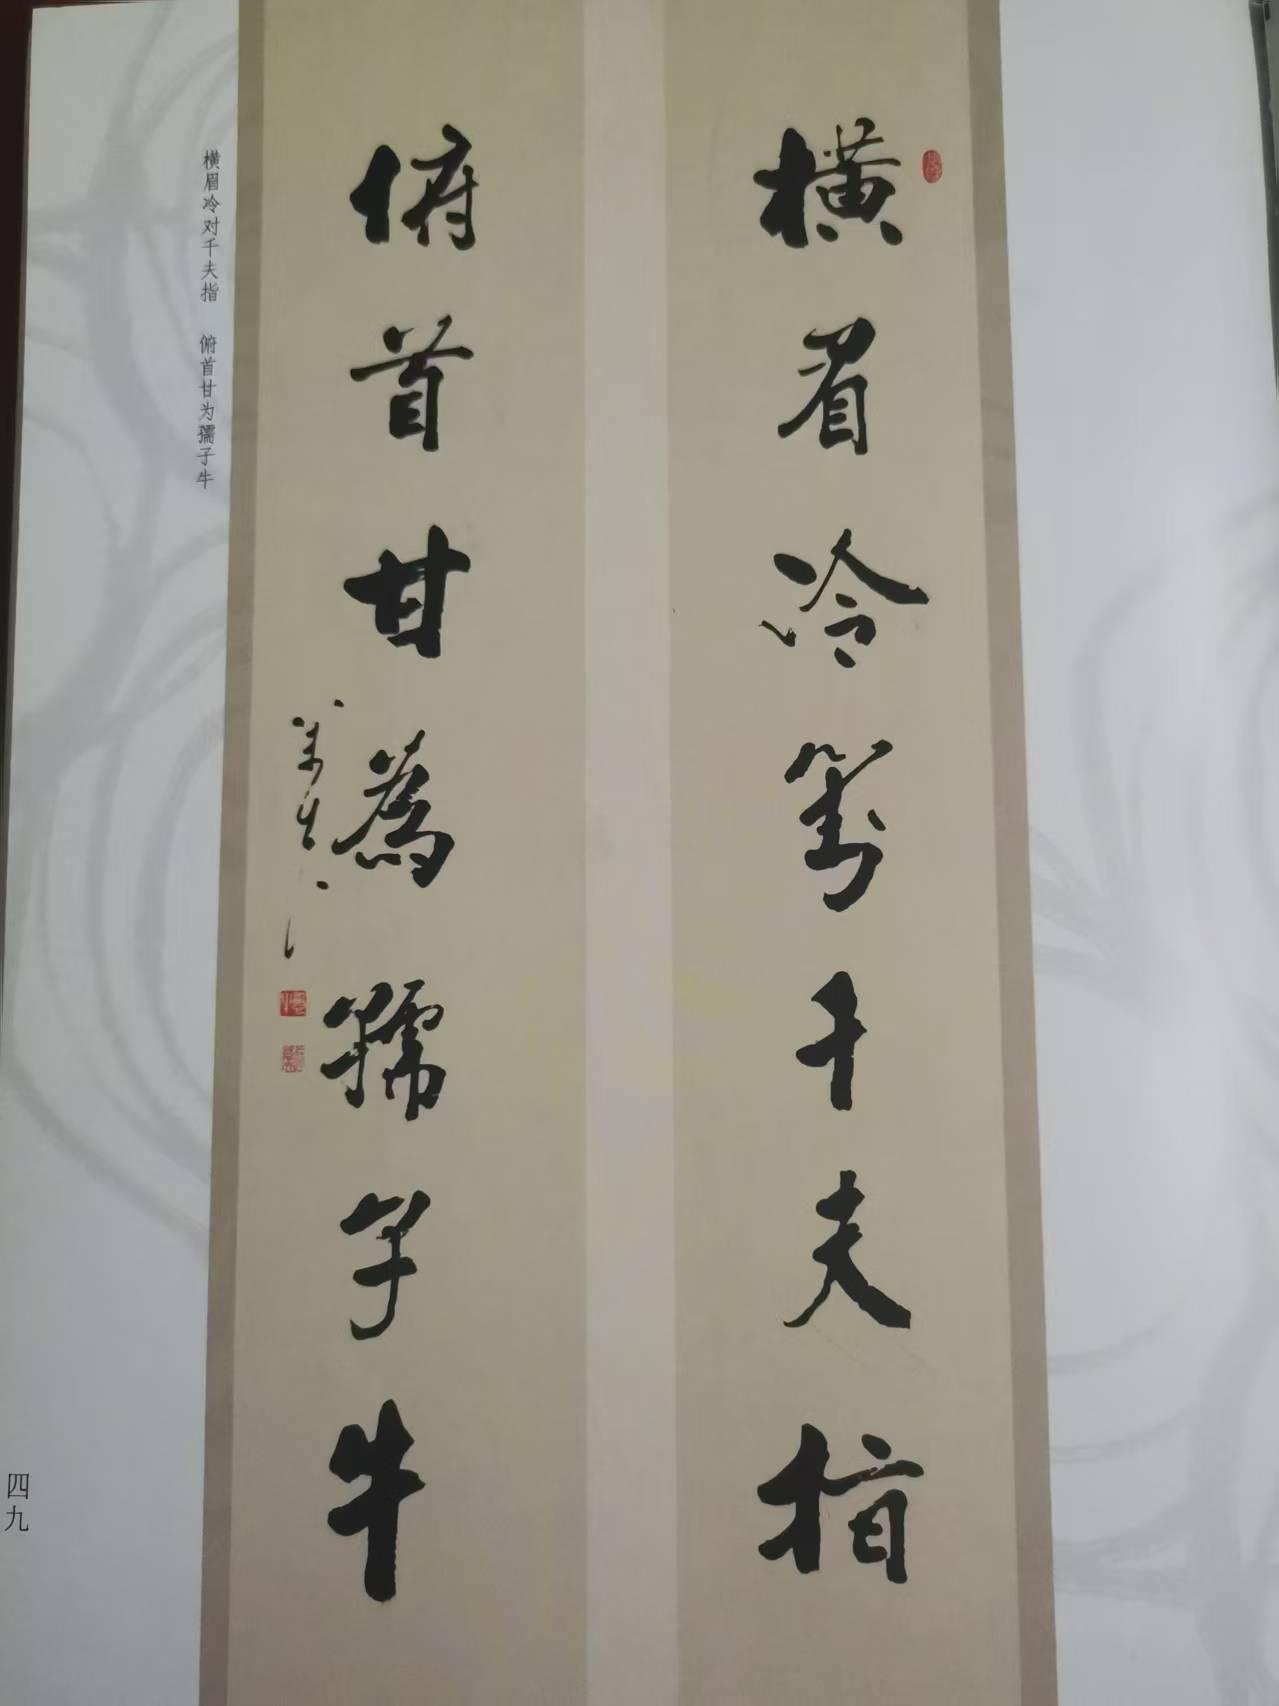 橫眉冷對千夫指
俯首甘為孺子牛
横眉冷对千夫指 俯首甘为孺子牛
四九